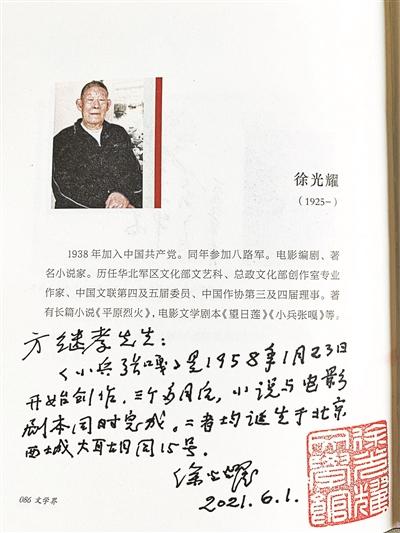 徐光耀
(1925-)
1938年加入中国共产党。同年参加八路军。电影编剧、著
名小说家。历任华北军区文化部文艺科、总政文化部创作室专业
作家、中国文联第四及五届委员、中国作协第三及四届理事。著
有长篇小说《平原烈火》,电影文学剧本《望日莲》《小兵张嘎》等。
方继孝先生:
《小兵张嘎》是1958年1月23日
开始创作,三个多月后,小说与电影
剧本同时完成。二者均诞生于北京
西城大耳胡同15号。
徐光耀
2021.6.1.
徐光耀
086 文学界